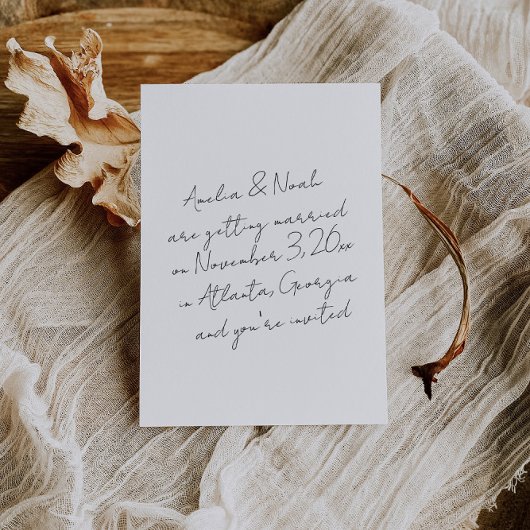 Amelia & Noah
are getting married
on November 3, 26xx
in Atlanta, Georgia
and you're invited